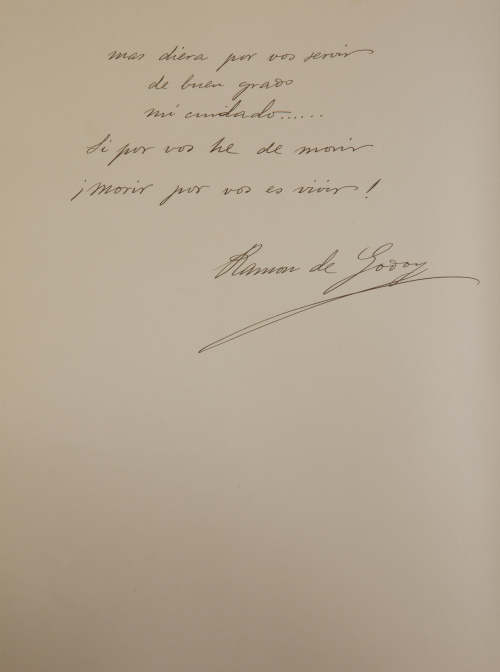 mas diera por vos servir
de buen grado
mi cuidado......
Si por vos he de morir
¡Morir por vos es vivir!
Ramon de Godoy